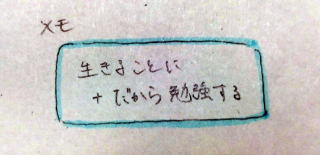 メモ
生きることに
+ だから 勉強する